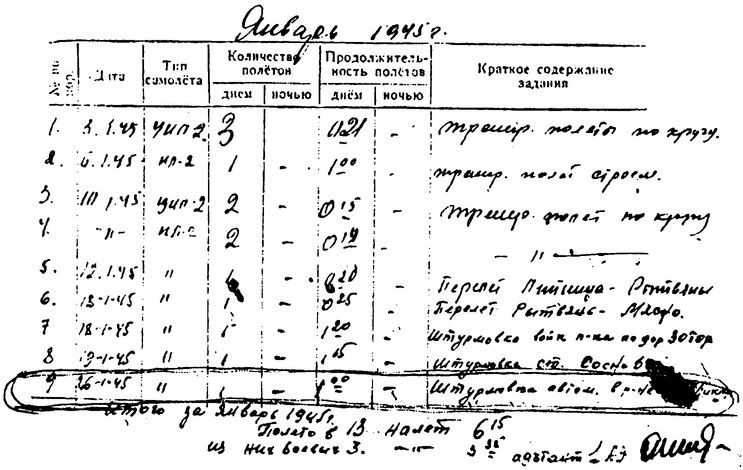 Январь 1945 г.
№ по пор. Дата Тип самолёта Количество полётов Продолжительность полётов Краткое содержание задания
днем ночью днём ночью
1. 3.1.45 УИЛ-2 3 - 0 21 - трениров. полеты по кругу.
2. 6.1.45 ИЛ-2 1 - 1 00 - трениров. полет строем.
3. 10.1.45 УИЛ-2 2 - 0 15 - трениров. полет по кругу
4. -"- ИЛ-2 2 - 0 14 - - " -
5. 12.1.45 " 1 - - Перелет - Рытвяны
6. 13-1-45 " 1 - 0 25 - Перелет Рытвяны -
7 18-1-45 " 1 - 1 20 - Штурмовка войк п-ка по дор
8 19-1-45 " 1 - 1 05 - Штурмовка ст.
9 26-1-45 " 1 - 1 00 - Штурмовка автом. в р-не
Итого за Январь 1945 г.
Полетов 13 налет 6 15
из них боевых 3. -"- 3 25 адъютант АЭ